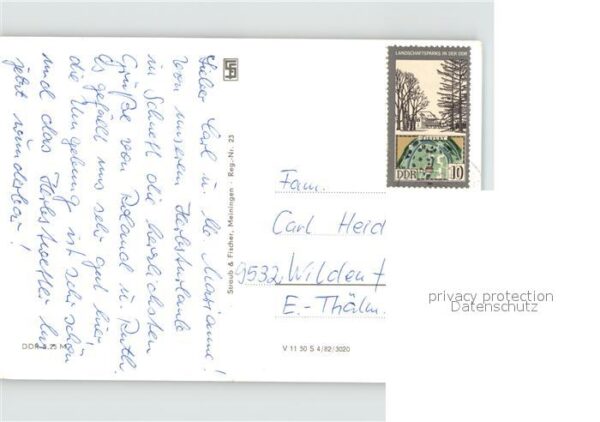 Lieber Carl u. lb. Marianne!
Von unserem Herbsturlaub
in Schnett die herzlichsten
Grüße von Roland u. Ruth.
Es gefällt uns sehr gut hier,
die Umgebung ist sehr schön
und das Herbstwetter
jetzt wunderbar!
DDR 0,25 M
Straub & Fischer, Meiningen · Reg.-Nr. 23
V 11 50 S 4/82/3020
LANDSCHAFTSPARKS IN DER DDR
DDR 10
Fam.
Carl Heid
9532 Wilden
E.-Thälm.
privacy protection
Datenschutz